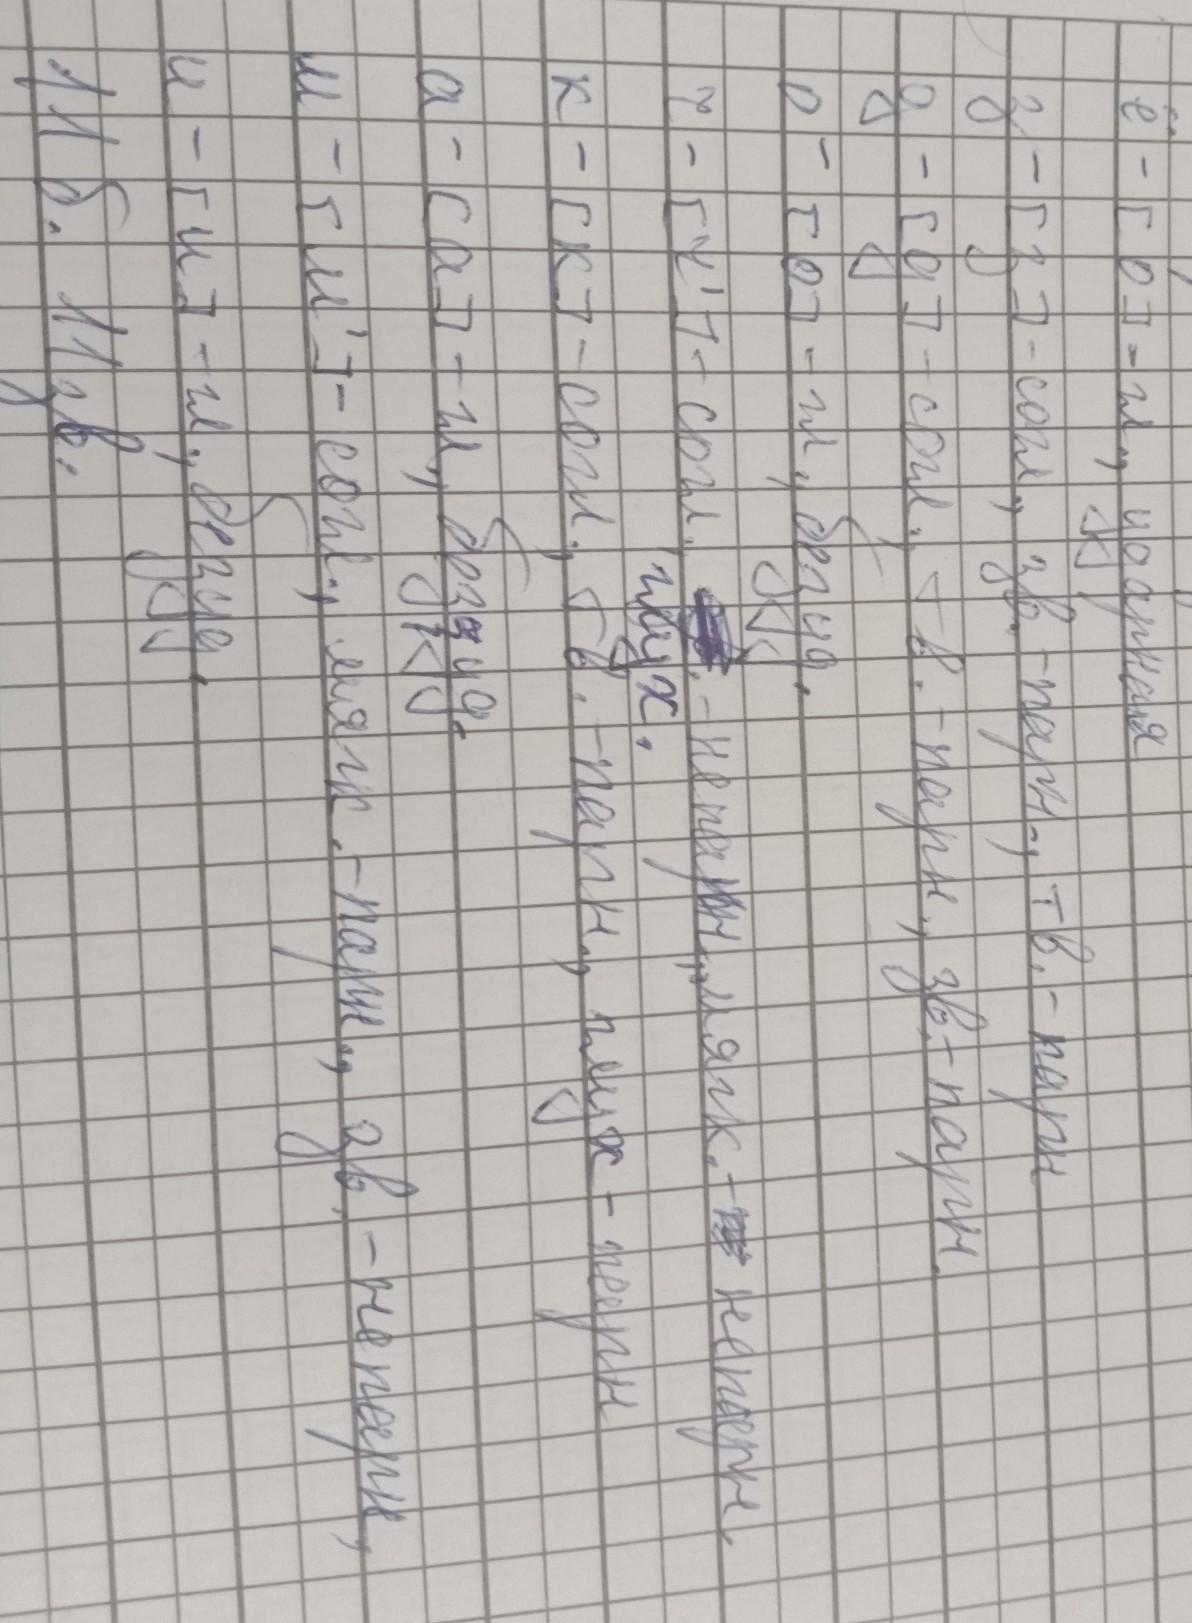 ё - [о] - гл., ударная
з - [з] - согл., зв. - парн., тв. - парн
д - [д] - согл., тв. - парн., зв. - парн.
о - [о] - гл., безуд.
ч - [ч'] - согл., глух. - непарн., мягк. - непарн.
к - [к] - согл., тв. - парн., глух - парн
а - [а] - гл., безуд.
м - [м'] - согл., мягк. - парн., зв. - непарн,
и - [и] - гл., безуд.
11 б. 11 зв.